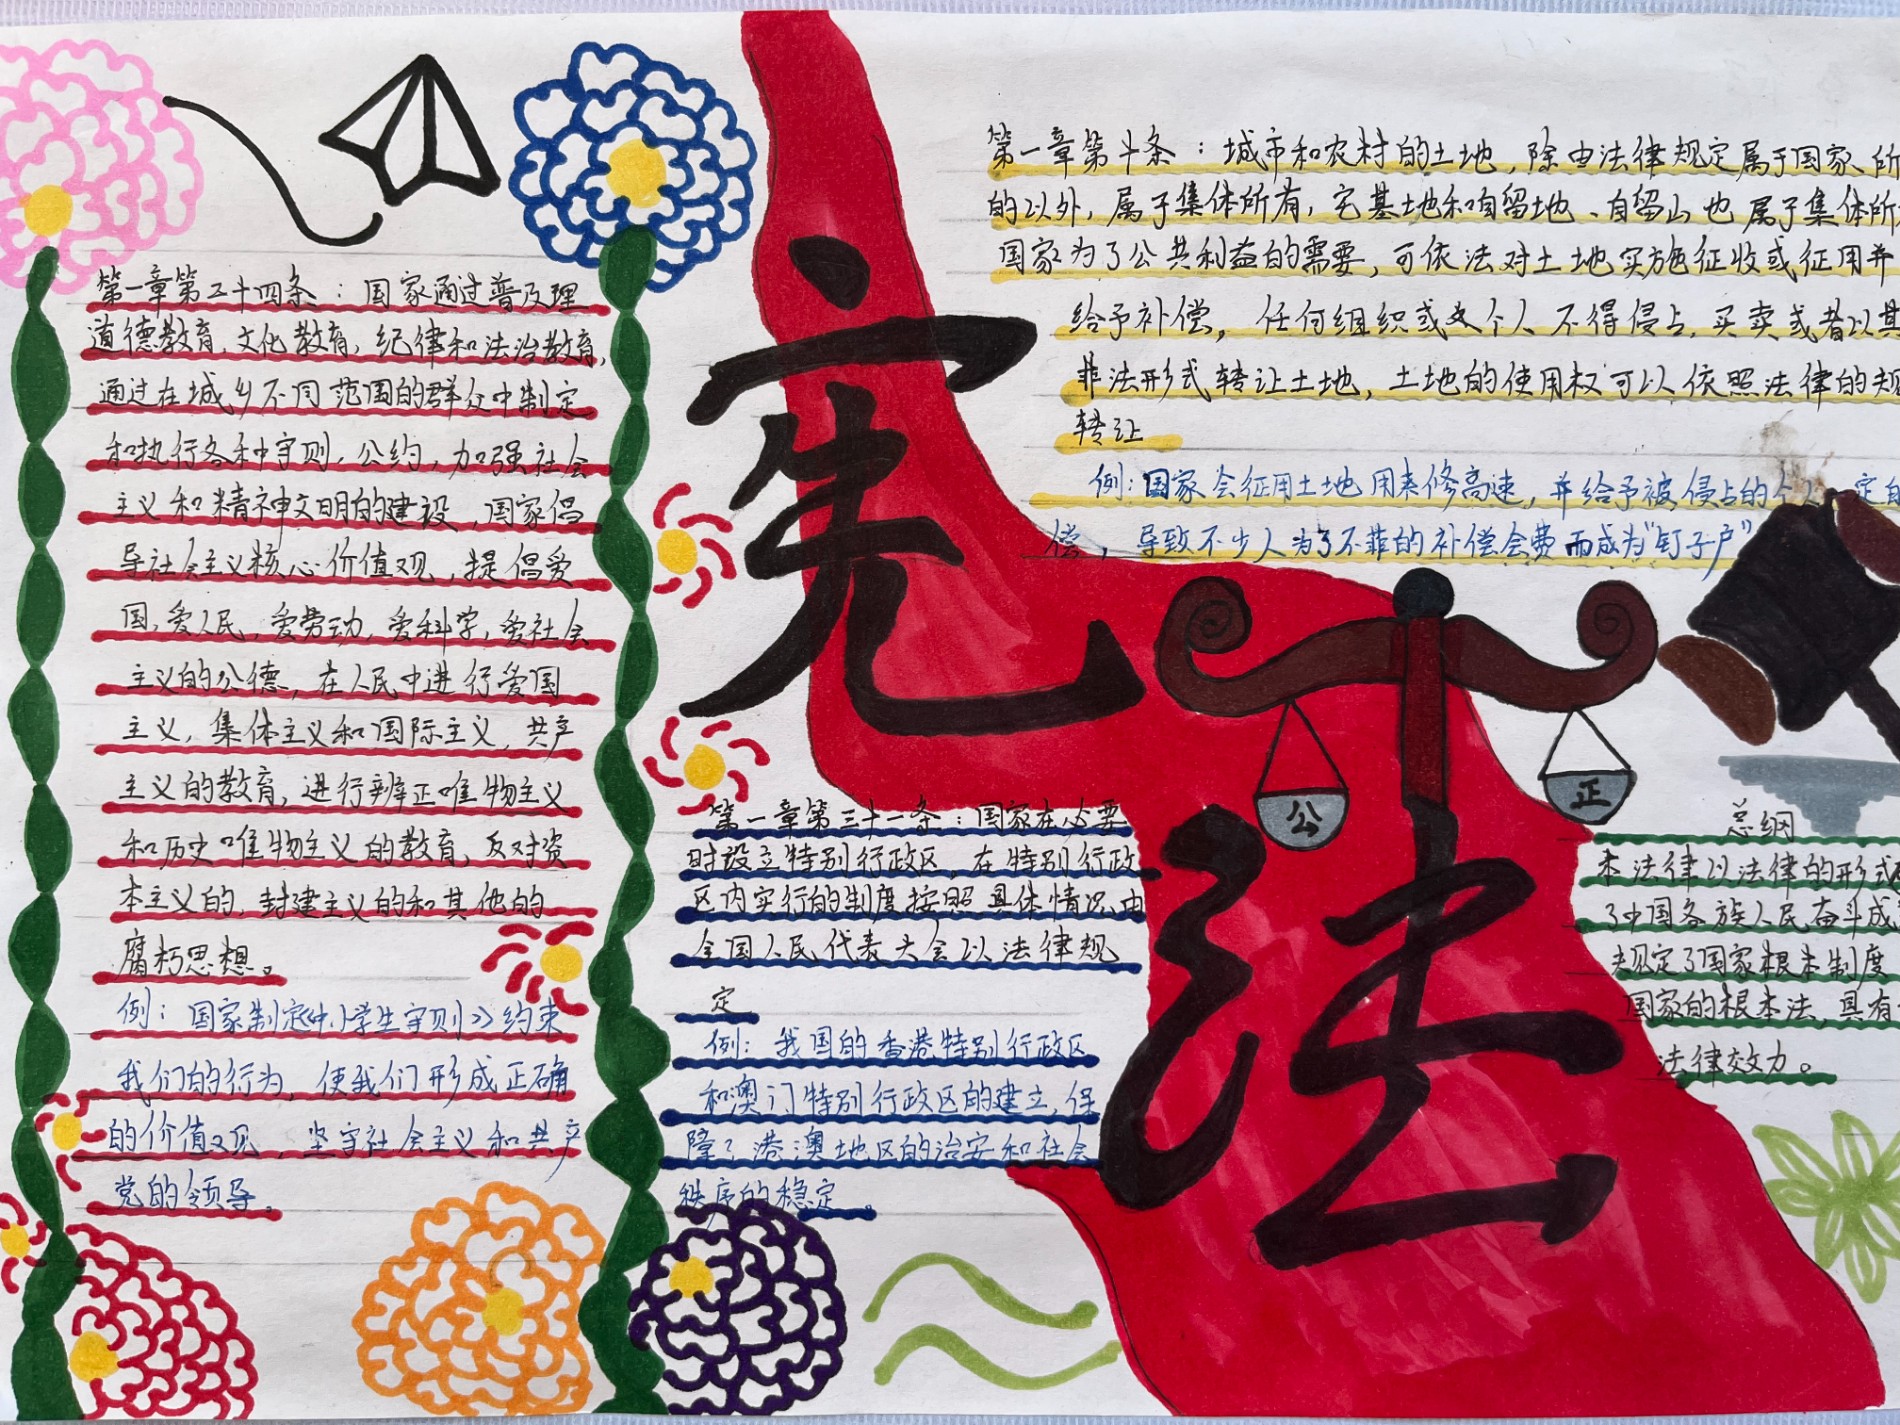 第一章第二十四条：国家通过普及理
道德教育，文化教育，纪律和法治教育，
通过在城乡不同范围的群众中制定
和执行各种守则，公约，加强社会
主义和精神文明的建设，国家倡
导社会主义核心价值观，提倡爱
国，爱人民，爱劳动，爱科学，爱社会
主义的公德，在人民中进行爱国
主义，集体主义和国际主义，共产
主义的教育，进行辨正唯物主义
和历史唯物主义的教育，反对资
本主义的，封建主义的和其他的
腐朽思想。
例：国家制定《中小学生守则》约束
我们的行为，使我们形成正确
的价值观，坚守社会主义和共产
党的领导。
宪法
第一章第十条：城市和农村的土地，除由法律规定属于国家所
的以外，属于集体所有，宅基地和自留地、自留山也属于集体所
国家为了公共利益的需要，可依法对土地实施征收或征用并
给予补偿。任何组织或个人不得侵占，买卖或者以其
非法形式转让土地，土地的使用权可以依照法律的规
转让
例：国家会征用土地用来修高速，并给予被侵占的个人 定的
偿，导致不少人为了不菲的补偿会费而成为“钉子户”
公
正
第一章第三十一条：国家在必要
时设立特别行政区，在特别行政
区内实行的制度按照具体情况由
全国人民代表大会以法律规
定
例：我国的香港特别行政区
和澳门特别行政区的建立，保
障了港澳地区的治安和社会
秩序的稳定。
总纲
本法律以法律的形式
了中国各族人民奋斗成
规定了国家根本制度
国家的根本法，具有
法律效力。